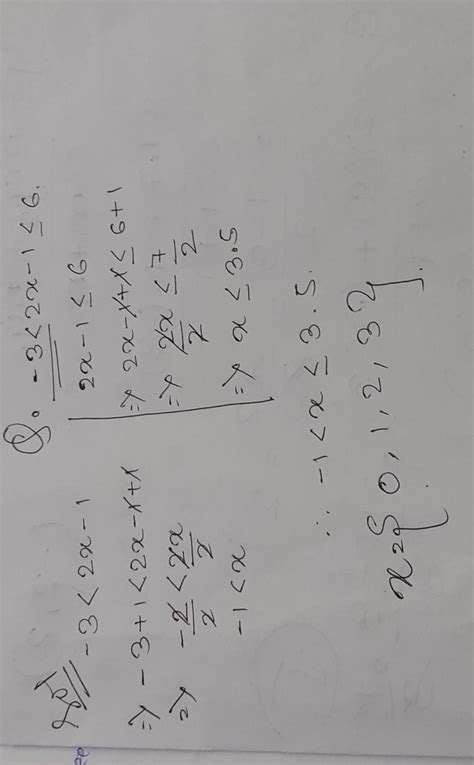 Q. -3 < 2x - 1 ≤ 6.
Sol
-3 < 2x - 1
⇒ -3 + 1 < 2x - 1 + 1
⇒ -2/2 < 2x/2
-1 < x
2x - 1 ≤ 6
⇒ 2x - 1 + 1 ≤ 6 + 1
⇒ 2x/2 ≤ 7/2
⇒ x ≤ 3.5
∴ -1 < x ≤ 3.5.
x = { 0, 1, 2, 3 }.